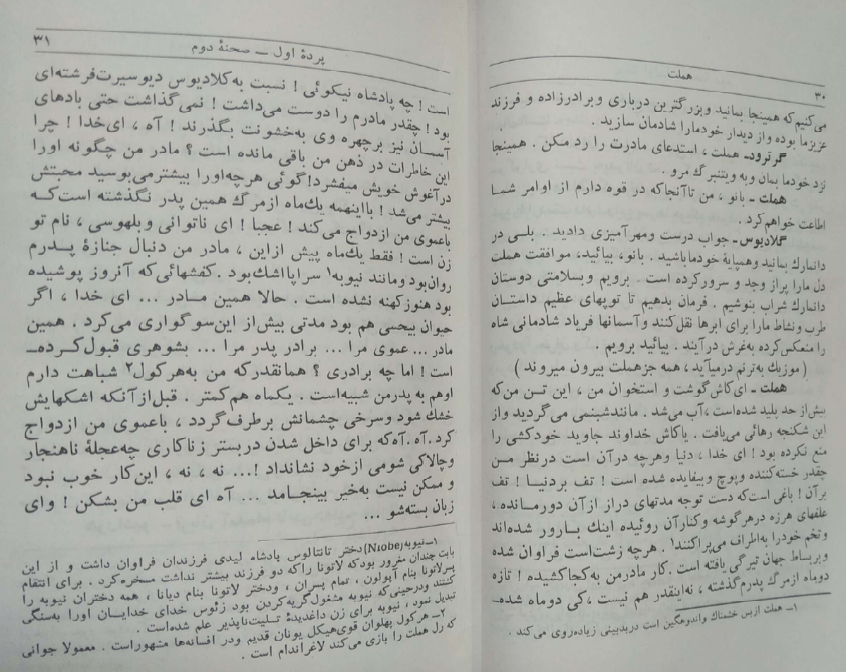 ۳۰
هملت
می‌کنیم که همینجا بمانید و بزرگترین درباری و برادرزاده و فرزند
عزیز ما بوده و از دیدار خود مارا شادمان سازید .
گرترود- هملت ، استدعای مادرت را رد مکن . همینجا
نزد خودما بمان و به ویتنبرگ مرو .
هملت - بانو ، من تا آنجا که در قوه دارم از اوامر شما
اطاعت خواهم کرد .
کلادیوس- جواب درست و مهرآمیزی دادید . بلی در
دانمارك بمانید و همپایهٔ خودما باشید . بانو، بیائید، موافقت هملت
دل مارا پراز وجد و سرور کرده است . برویم و بسلامتی دوستان
دانمارك شراب بنوشیم . فرمان بدهیم تا توپهای عظیم داستان
طرب و نشاط مارا برای ابرها نقل کنند و آسمانها فریاد شادمانی شاه
را منعکس کرده به غرش در آیند . بیائید برویم .
( موزیك به ترنم درمیآید ، همه جز هملت بیرون میروند )
هملت - ای کاش گوشت و استخوان من ، این تن من که
بیش از حد پلید شده است ، آب می‌شد . مانند شبنمی می‌گردید و از
این شکنجه رهائی می‌یافت . یا کاش خداوند جاوید خودکشی را
منع نکرده بود ! ای خدا ، دنیا و هرچه در آن است در نظر من
چقدر خسته کننده و پوچ و بیفایده شده است ! تف بر دنیا ! تف
بر آن ! باغی است که دست توجه مدتهای دراز از آن دور مانده ،
علفهای هرزه در هر گوشه و کنار آن روئیده اینك بارور شده اند
و تخم خود را به اطراف می‌پراکنند۱ . هرچه زشت است فراوان شده
و بر بساط جهان تیرگی یافته است . کار مادر من به کجا کشیده ! تازه
دوماه از مرگ پدرم گذشته ، نه اینقدر هم نیست ، کی دو ماه شده-
۱- هملت از بس خشمناك و اندوهگین است در بدبینی زیاده‌روی می‌کند .
پردهٔ اول - صحنهٔ دوم
۳۱
است ! چه پادشاه نیکوئی ! نسبت به کلادیوس دیوسیرت فرشته‌ای
بود ! چقدر مادرم را دوست می‌داشت ! نمی‌گذاشت حتی بادهای
آسمان نیز بر چهره وی به خشونت بگذرند ! آه ، ای خدا ! چرا
این خاطرات در ذهن من باقی مانده است ؟ مادر من چگونه اورا
در آغوش خویش میفشرد! گوئی هرچه اورا بیشتر می‌بوسید محبتش
بیشتر می‌شد ! با اینهمه یك ماه از مرگ همین پدر نگذشته است که
با عموی من ازدواج می‌کند ! عجبا ! ای ناتوانی و بلهوسی ، نام تو
زن است ! فقط یك ماه پیش از این ، مادر من دنبال جنازهٔ پدرم
روان بود و مانند نیوبه۱ سراپا اشك بود . کفشهائی که آنروز پوشیده
بود هنوز کهنه نشده است . حالا همین مادر ... ای خدا ، اگر
حیوان بیحسی هم بود مدتی بیش از این سوگواری می‌کرد . همین
مادر ... عموی مرا ... برادر پدر مرا ... بشوهری قبول کرده-
است ! اما چه برادری ؟ همانقدر که من به هرکول۲ شباهت دارم
اوهم به پدرمن شبیه است . یکماه هم کمتر . قبل از آنکه اشکهایش
خشك شود و سرخی چشمانش بر طرف گردد ، باعموی من ازدواج
کرد. آه . آه که برای داخل شدن در بستر زناکاری چه عجلهٔ ناهنجار
و چالاکی شومی از خود نشانداد !... نه ، نه ، این کار خوب نبود
و ممکن نیست به خیر بینجامد ... آه ای قلب من بشکن ! وای
زبان بسته شو ...
۱- نیوبه (NIOBE) دختر تانتالوس پادشاه لیدی فرزندان فراوان داشت و از این
بابت چندان مغرور بود که لاتونا را که دو فرزند بیشتر نداشت مسخره کرد . برای انتقام
پسر لاتونا بنام آپولون ، تمام پسران ، و دختر لاتونا بنام دیانا ، همه دختران نیوبه را
کشتند و در حینی که نیوبه مشغول گریه کردن بود زئوس خدای خدایان اورا به سنگی
تبدیل نمود ، نیوبه برای زن داغدیدهٔ تسلیت ناپذیر علم شده است .
۲- هرکول پهلوان قوی هیکل یونان قدیم و در افسانه‌ها مشهور است . معمولا جوانی
که رل هملت را بازی می‌کند لاغر اندام است .